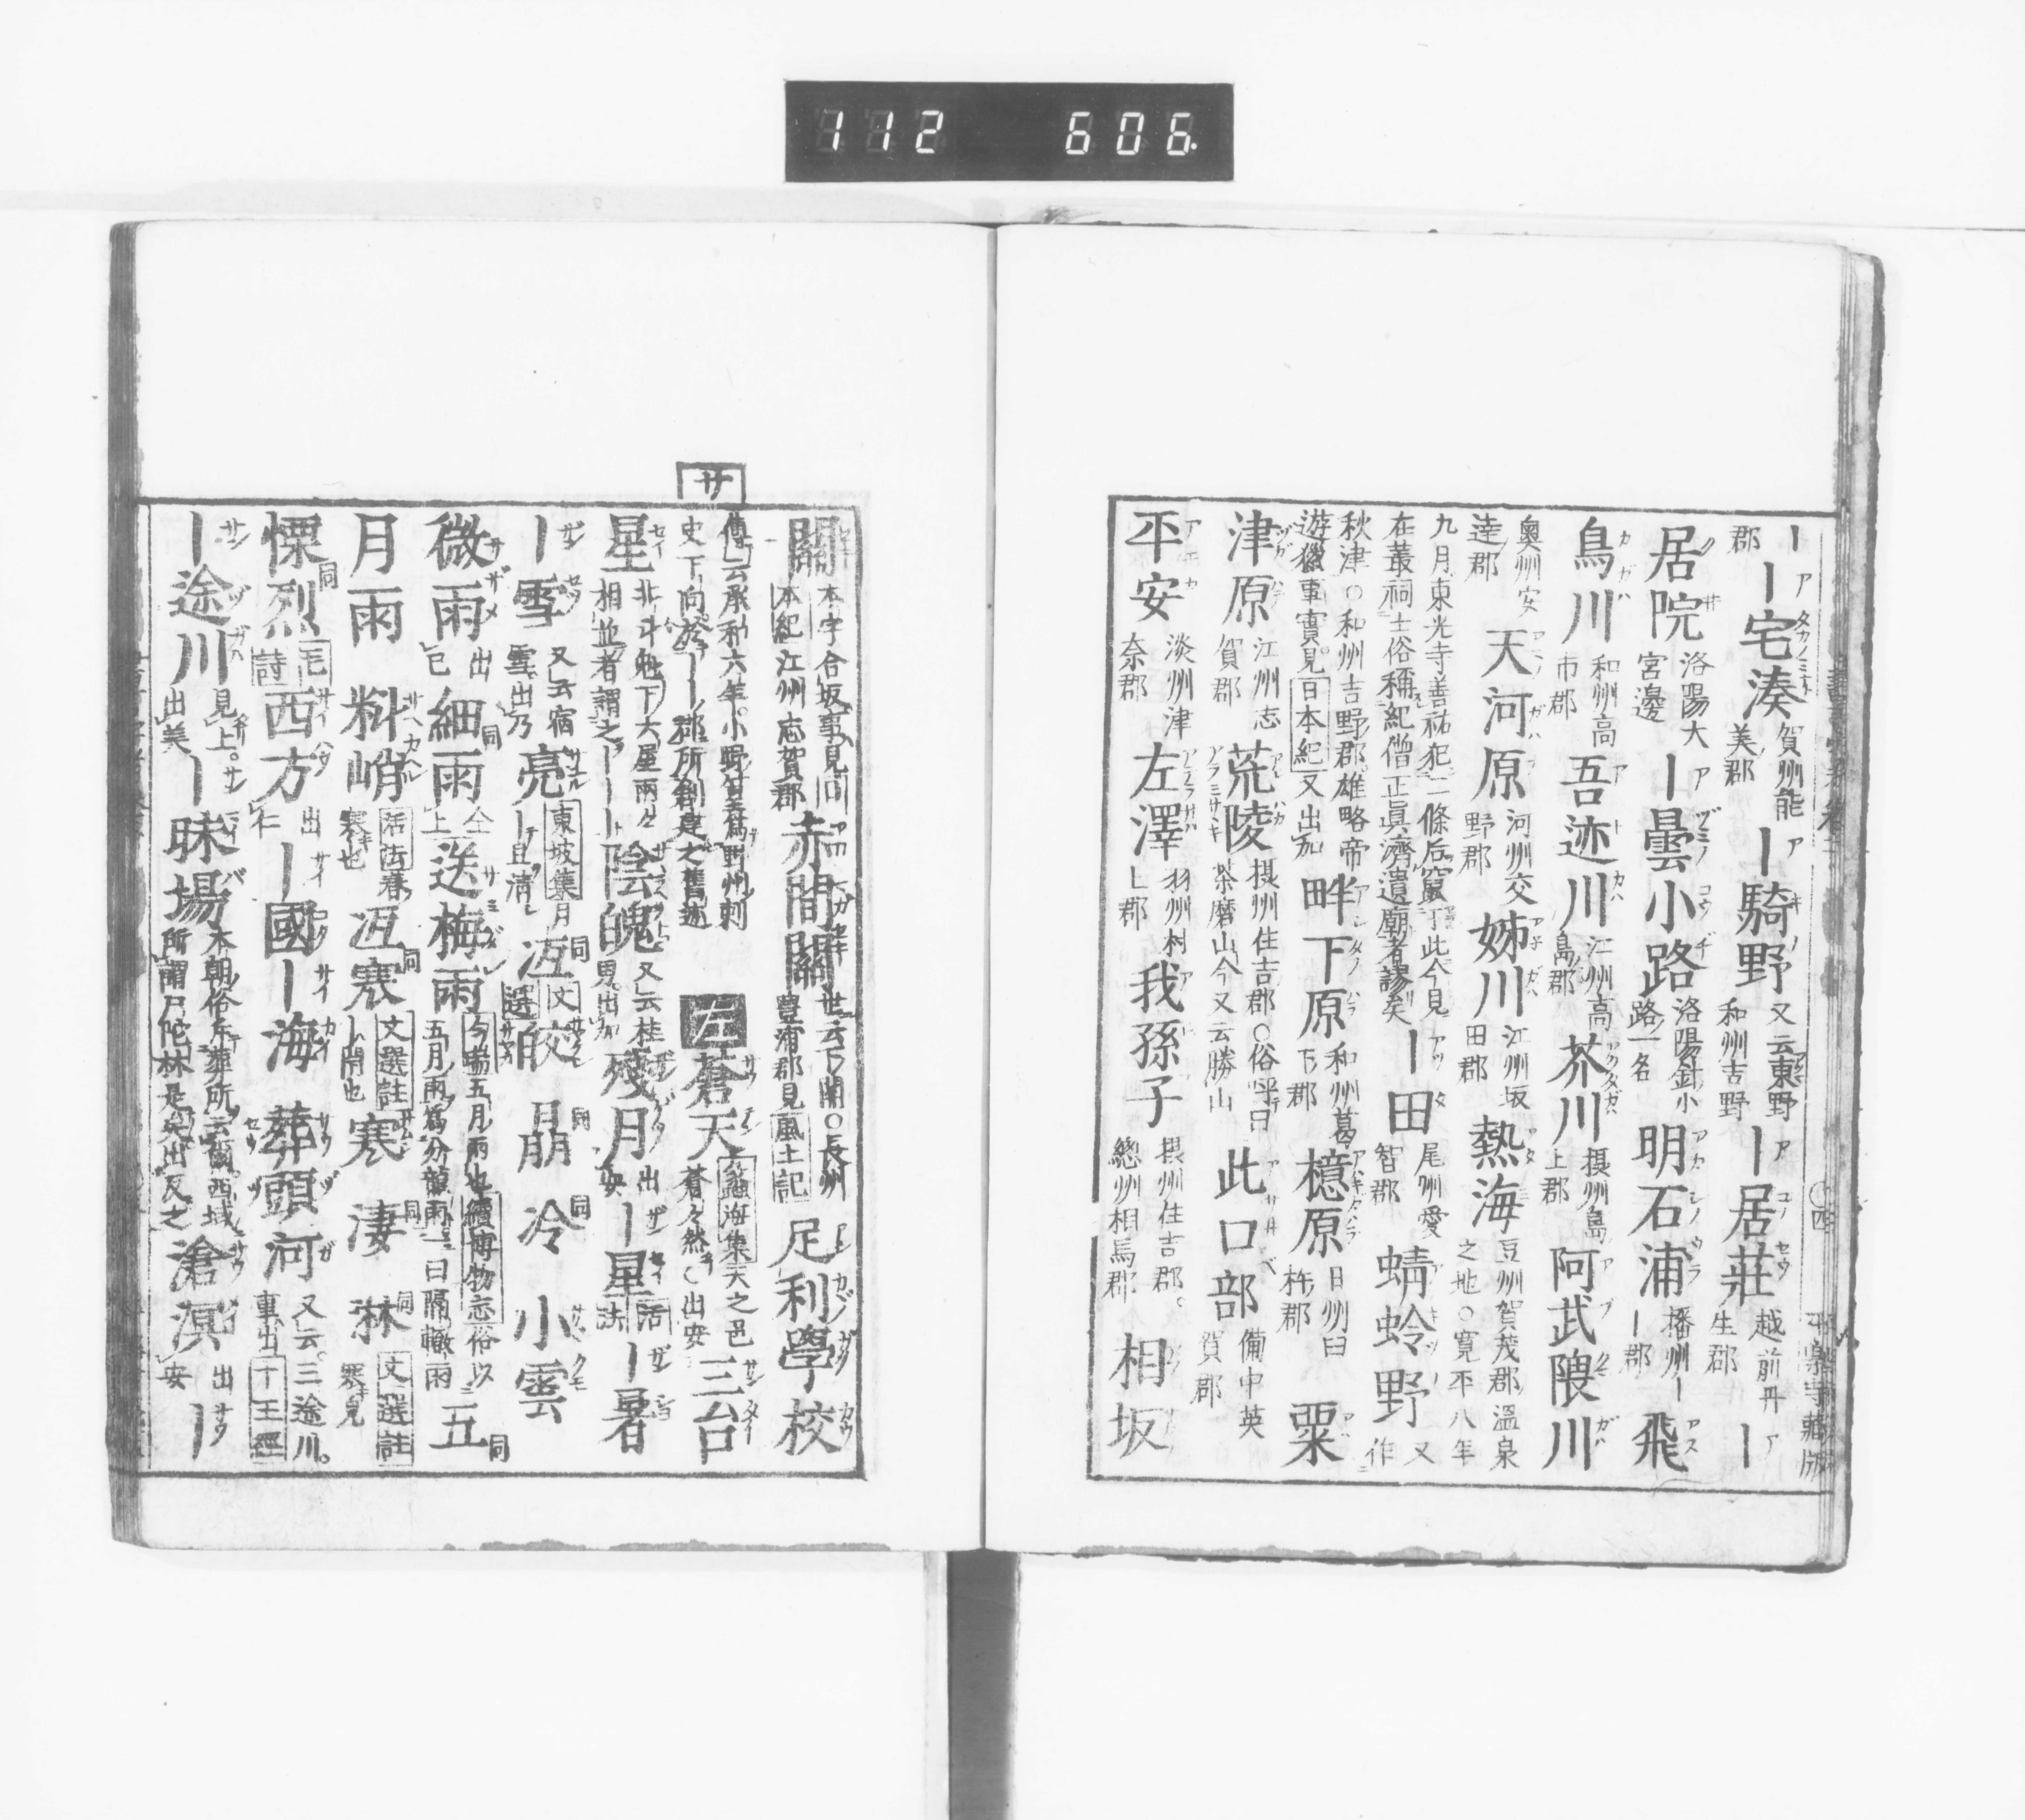 112 606
｜
郡
｜宅湊 賀州能
美郡
｜騎野 又云東野
和州吉野
｜居莊 越前丹
生郡
｜
居院 洛陽大
宮邊
｜曇小路 洛陽針小
路一名
明石浦 播州｜
｜郡
飛
鳥川 和州高
市郡
吾迹川 江州高
島郡
芥川 摂州島
上郡
阿武隈川
奥州安
達郡
天河原 河州交
野郡
姊川 江州坂
田郡
熱海 豆州賀茂郡溫泉
之地○寛平八年
九月東光寺善祐犯二條后竄于此今見
在叢祠土俗稱紀僧正眞濟遺廟者謬矣
｜田 尾州愛
智郡
蜻蛉野 又
作
秋津○和州吉野郡雄略帝
遊獵車實見日本紀又出加
畔下原 和州葛
下郡
檍原 日州臼
杵郡
粟
津原 江州志
賀郡
荒陵 摂州住吉郡○俗呼曰
茶磨山今又云勝山
此口部 備中英
賀郡
平安 淡州津
奈郡
左澤 羽州村
上郡
我孫子 摂州住吉郡
總州相馬郡
相坂
平樂寺藏版
關 本字合坂事見同
本紀江州志賀郡
赤間關 世云下關○長州
豊浦郡見風土記
足利學校
傳云承和六年小野篁爲野州刺
史下向於｜｜郡所創建之舊迹
サ
蒼天 蠡海集天之色
蒼々然○出安
三台
星 北斗魁下大星兩々
相並者謂之｜｜
｜陰魄 又云桂
月出加
殘月 出
安
｜星 活
法
｜暑
｜雪 又云宿
雪出乃
亮 東坡集月
｜且淸
冱 同 文
選
皎 朤 同
冷 同
小雲
微雨 出
已
細雨 同 仝
上
送梅雨 今端五月雨也續博物志俗以
五月雨爲分龍雨一曰隔轍雨
五 同
月雨 料峭 活法春
寒也
冱寒 同 文選註
｜閉也
寒 凄 同
淋 同 文選註
寒皃
慄烈 同 毛
詩
西方 出
仁
｜國 ｜海 葬頭河 又云三途川
車出十王經
｜途川 見上
出美
｜昧場 本朝俗
所謂尸陀林是矣出反之
滄溟 出
安
｜